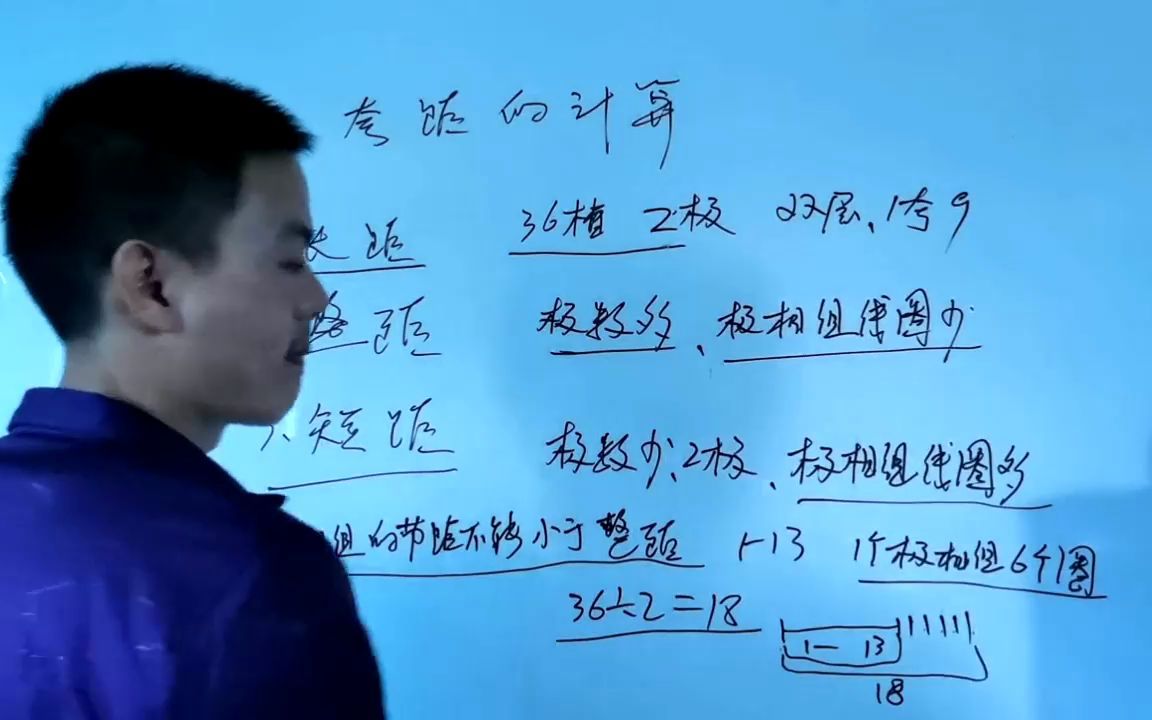 夸距的计算
长距 36槽 2极 双层、1夸9
整距 极数多、极相组线圈少
、短距 极数少、2极、极相组线圈多
组的节距不能小于整距 1-13 1个极相组6个圈
36÷2=18
1— 13
18